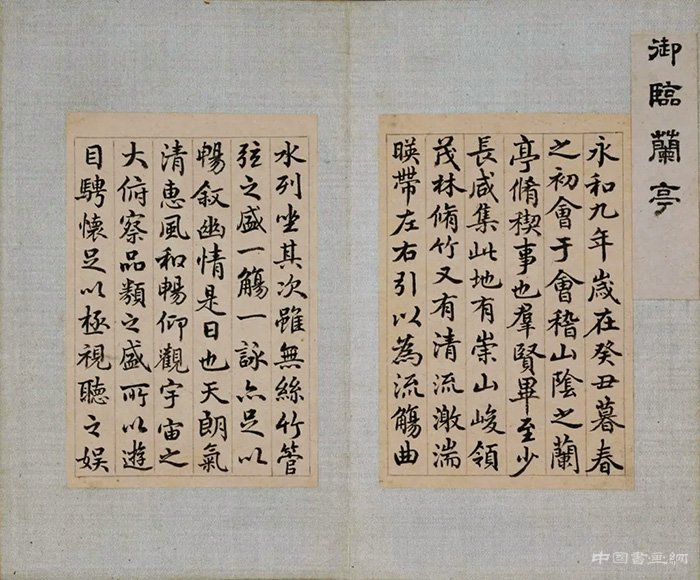 御臨蘭亭
永和九年歲在癸丑暮春
之初會于會稽山陰之蘭
亭脩稧事也羣賢畢至少
長咸集此地有崇山峻領
茂林脩竹又有清流激湍
暎帶左右引以為流觴曲
水列坐其次雖無絲竹管
弦之盛一觴一詠亦足以
暢叙幽情是日也天朗氣
清惠風和暢仰觀宇宙之
大俯察品類之盛所以遊
目騁懷足以極視聽之娛
中国書画網